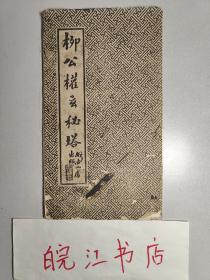 柳公權玄秘塔
出版
皖江书店